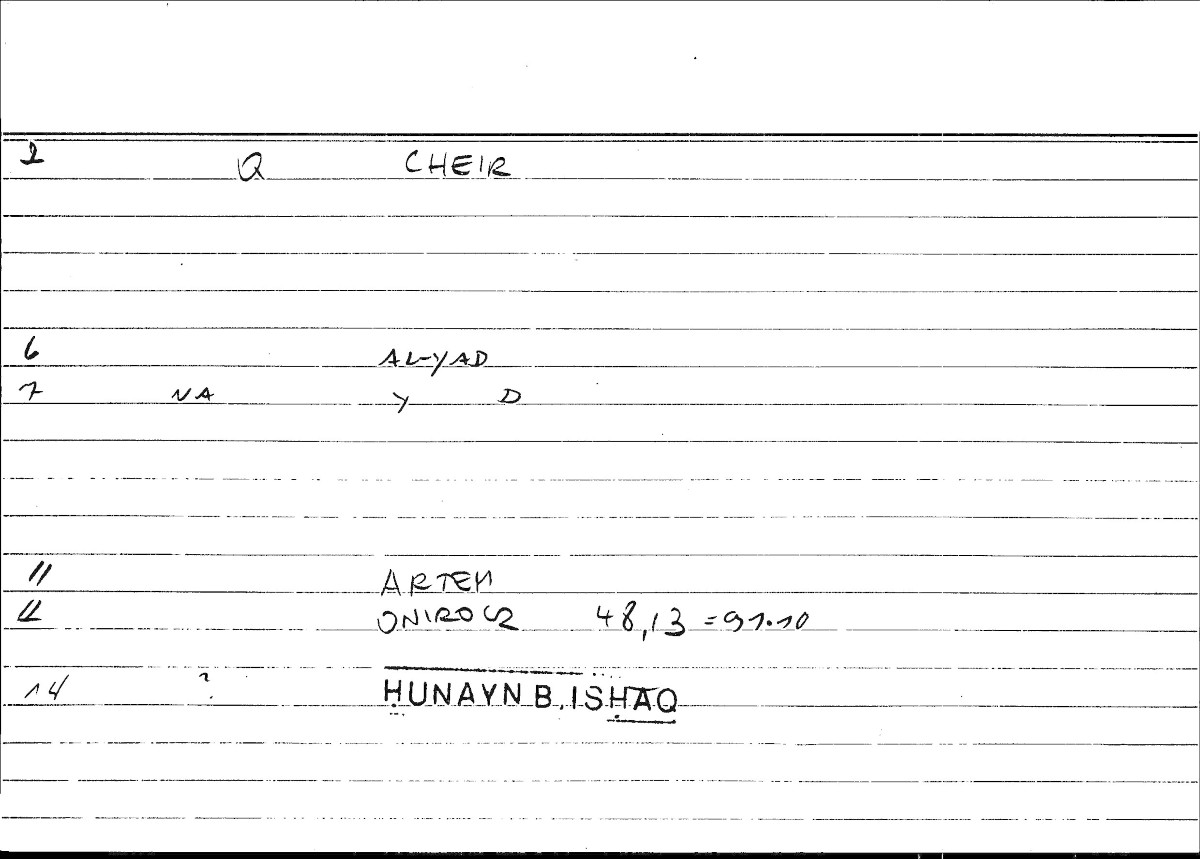 2 Q CHEIR
6 AL-YAD
7 NA Y D
11 ARTEM
12 ONIROCR 48,13 = 91.10
14 ? ḤUNAYN B. ISḤĀQ